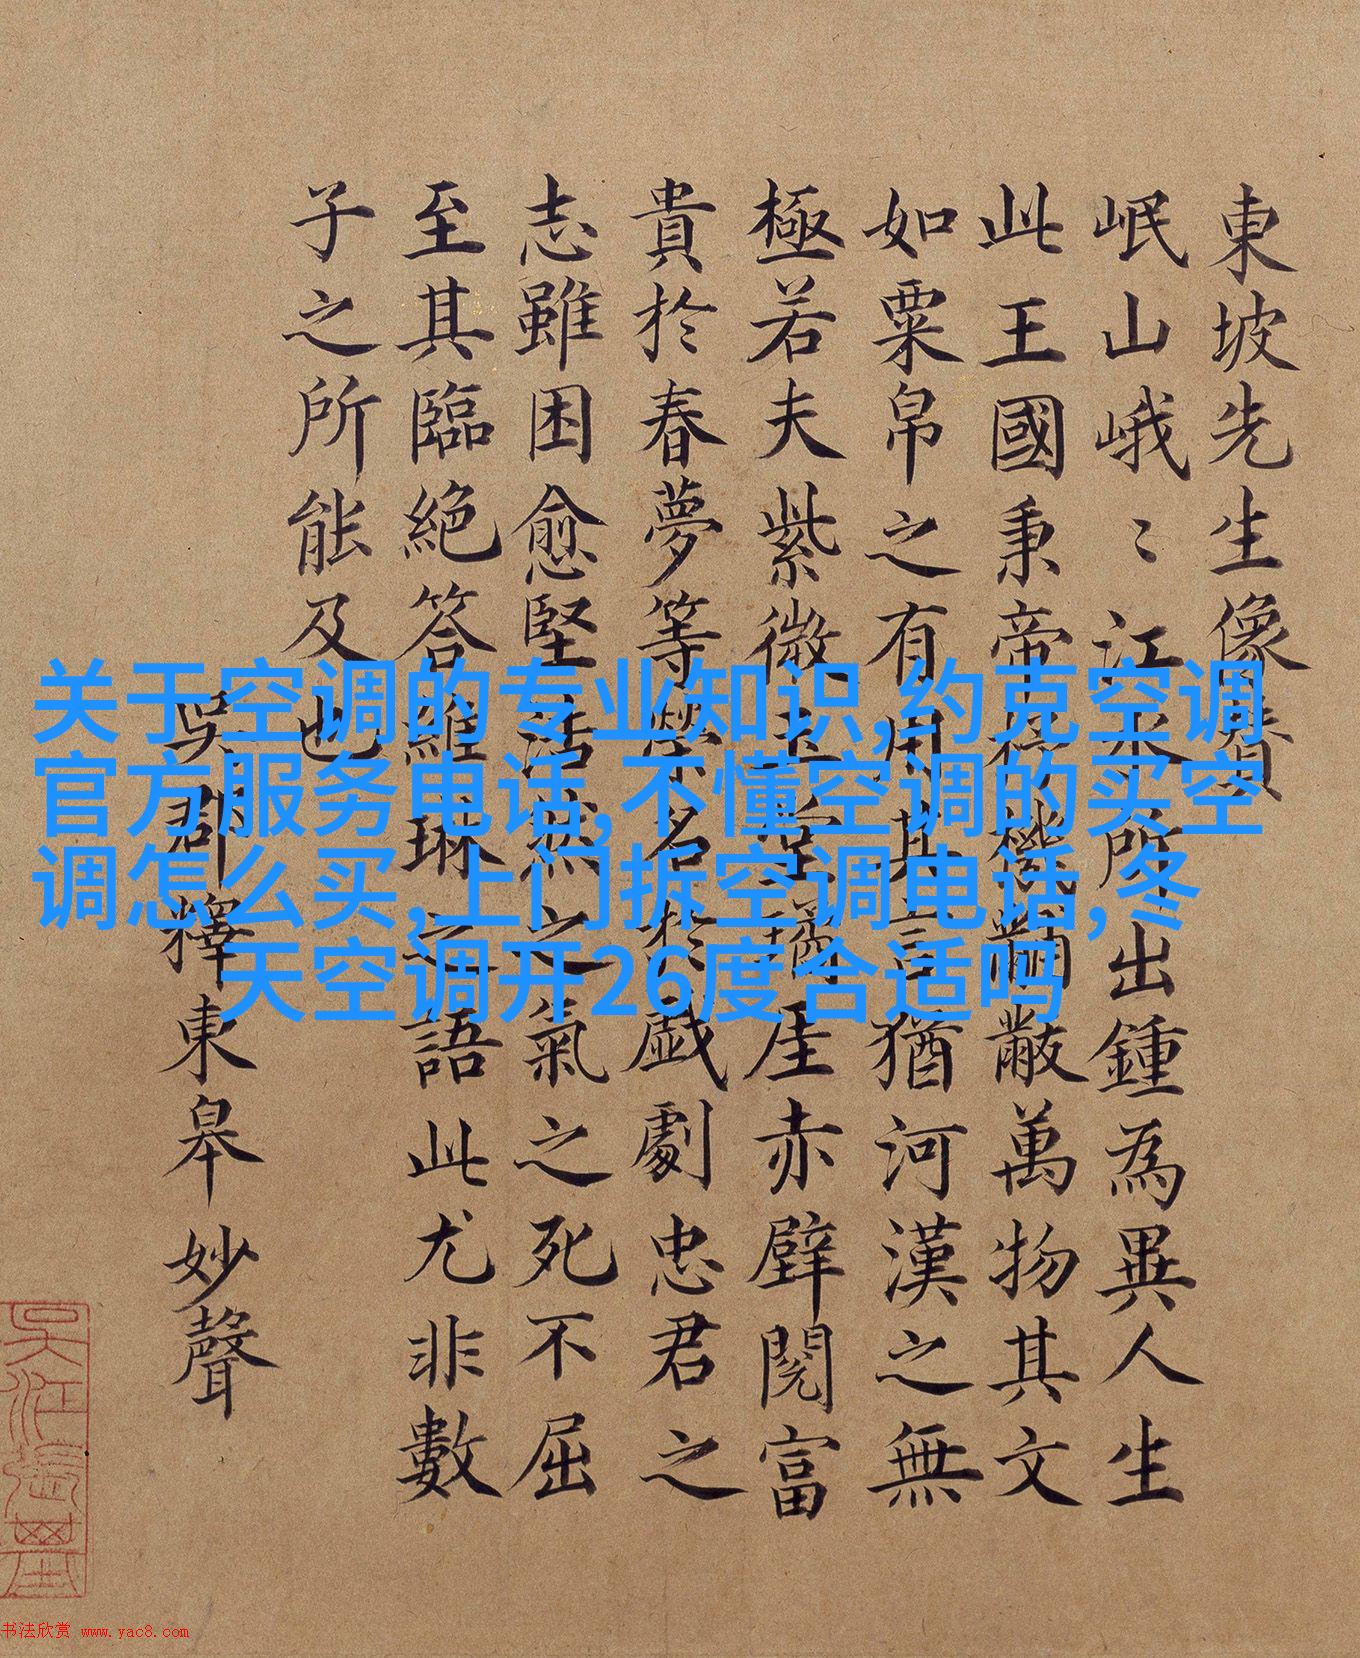 東坡先生像贊
岷山峨〻江水所出鍾為異人生
此王國秉帝杼機黼黻萬物其文
如粟帛之有用其言猶河漢之無
極若夫紫微玉堂瓊崖赤壁閱富
貴於春夢等榮名於戲劇忠君之
志雖困愈堅浩然之氣之死不屈
至其臨絕答維琳之語此尤非數
子之所能及也
吳郡釋東皋妙聲
关于空调的专业知识,约克空调
官方服务电话,不懂空调的买空
调怎么买,上门拆空调电话,冬
天空调开26度合适吗
书法欣赏 www.yac8.com